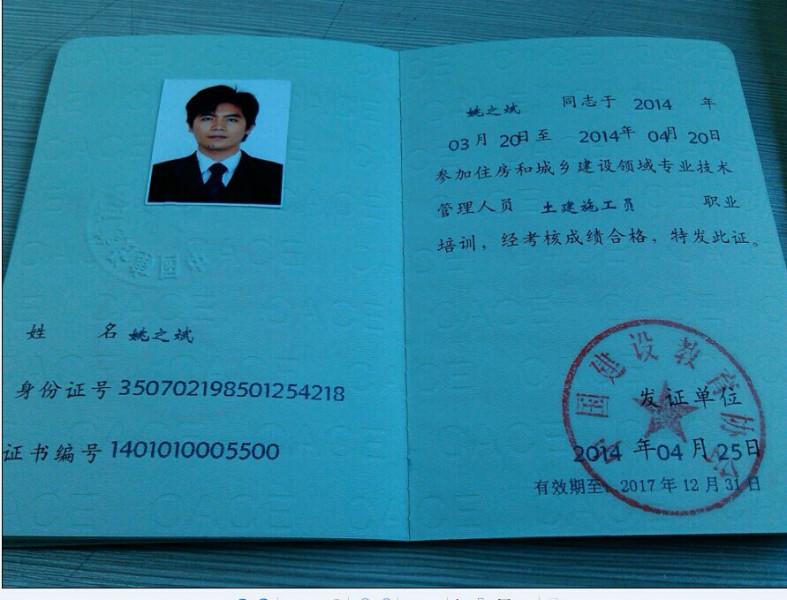 姓 名 姚之斌
身份证号 350702198501254218
证书编号 1401010005500
姚之斌 同志于 2014 年
03 月 20日至 2014年 04月 20日
参加住房和城乡建设领域专业技术
管理人员 土建施工员 职业
培训，经考核成绩合格，特发此证。
中国建设教育协会
发证单位
2014 年04 月 25日
有效期至：2017 年 12 月 31 日